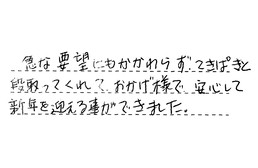 急な要望にもかかわらず、てきぱきと
段取ってくれて、おかげ様で、安心して
新年を迎える事ができました。